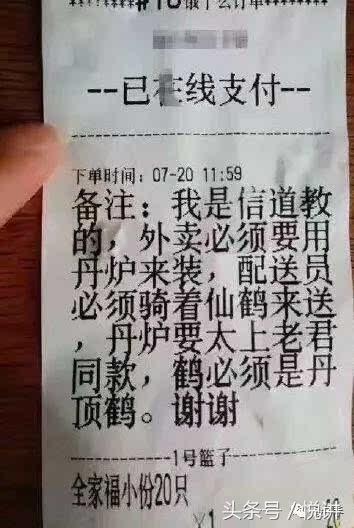 #10饿了么订单
--已在线支付--
下单时间：07-20 11:59
备注：我是信道教
的，外卖必须要用
丹炉来装，配送员
必须骑着仙鹤来送
，丹炉要太上老君
同款，鹤必须是丹
顶鹤。谢谢
1号篮子
全家福小份20只
x1
头条号